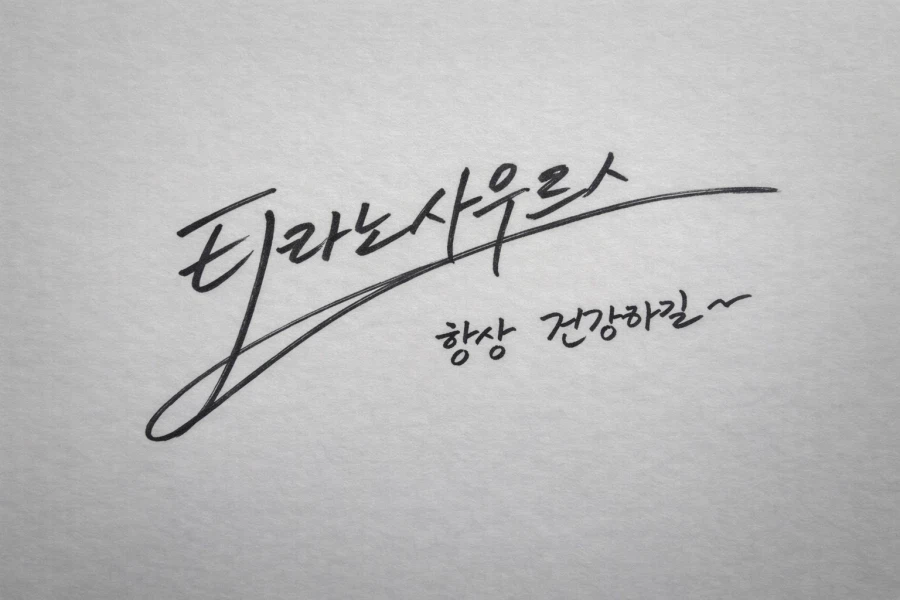 티라노사우르스
항상 건강하길~